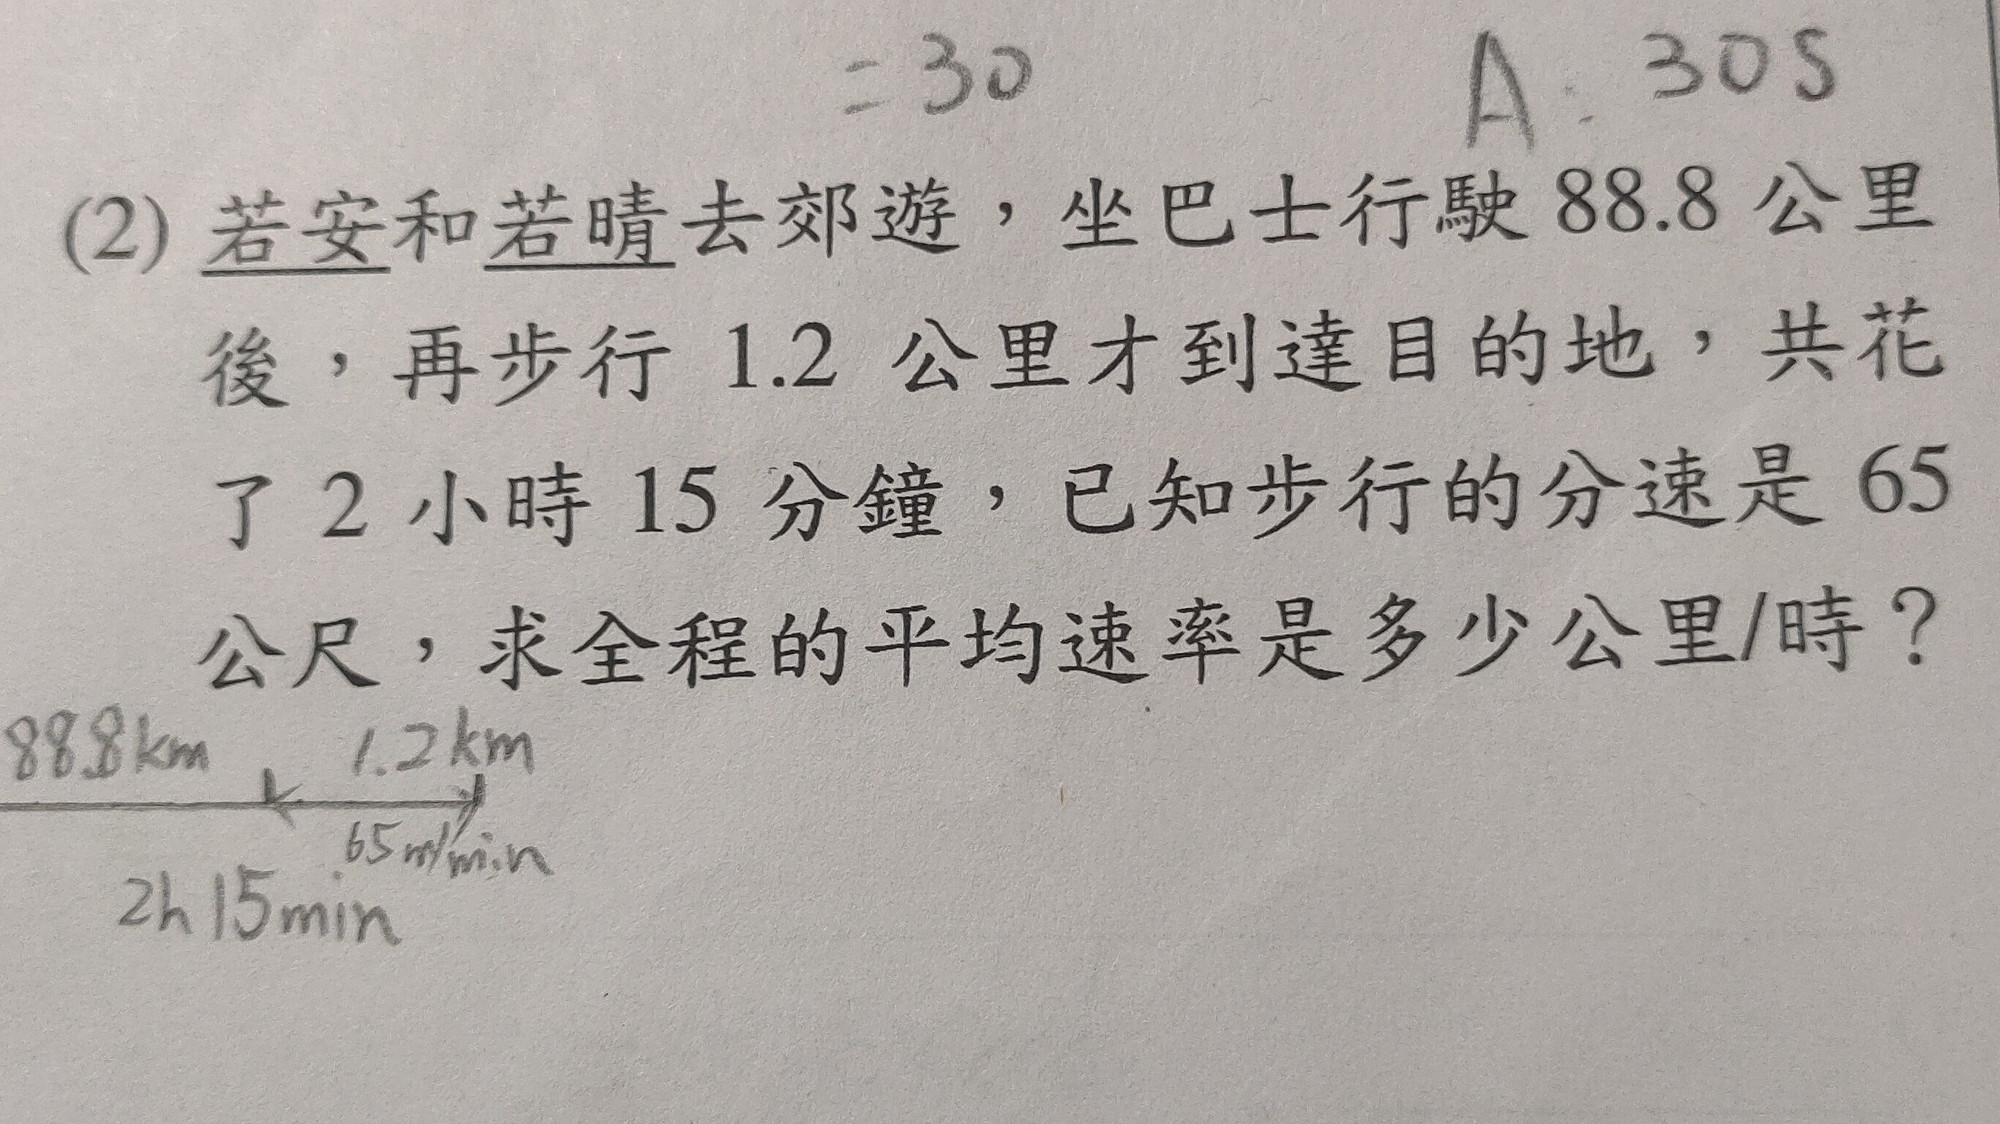 =30 A: 30s
(2) 若安和若晴去郊遊，坐巴士行駛 88.8 公里
後，再步行 1.2 公里才到達目的地，共花
了 2 小時 15 分鐘，已知步行的分速是 65
公尺，求全程的平均速率是多少公里/時？
88.8km 1.2km
65m/min
2h15min